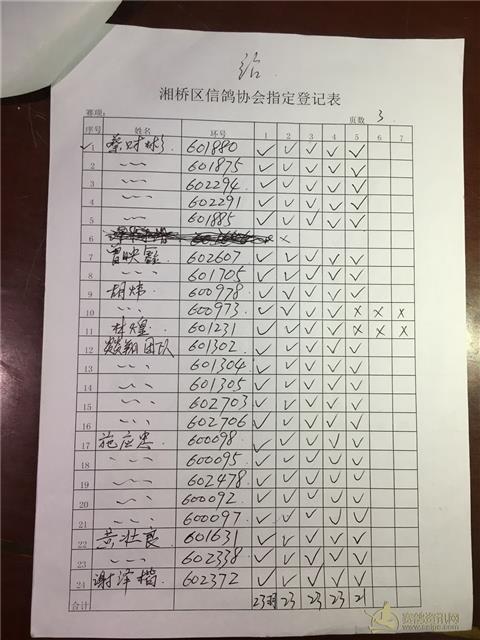 湘桥区信鸽协会指定登记表
赛项： 页数 3
序号 姓名 环号 1 2 3 4 5 6 7
✓ 1 蔡财彬 601880 ✓ ✓ ✓ ✓ ✓
2 〃 601875 ✓ ✓ ✓ ✓ ✓
3 〃 602294 ✓ ✓ ✓ ✓ ✓
4 〃 602291 ✓ ✓ ✓ ✓ ✓
5 〃 601885 ✓ ✓ ✓ ✓ ✓
6 ×
7 曾映鑫 602607 ✓ ✓ ✓ ✓ ✓
8 〃 601705 ✓ ✓ ✓ ✓ ✓
9 胡炜 600978 ✓ ✓ ✓ ✓ ✓
10 〃 600973 ✓ ✓ ✓ ✓ × × ×
11 林煌 601231 ✓ ✓ ✓ ✓ × × ×
12 翔团队 601302 ✓ ✓ ✓ ✓ ✓
13 〃 601304 ✓ ✓ ✓ ✓ ✓
14 〃 601305 ✓ ✓ ✓ ✓ ✓
15 〃 602703 ✓ ✓ ✓ ✓ ✓
16 〃 602706 ✓ ✓ ✓ ✓ ✓
17 施应忠 600098 ✓ ✓ ✓ ✓ ✓
18 〃 600095 ✓ ✓ ✓ ✓ ✓
19 〃 602478 ✓ ✓ ✓ ✓ ✓
20 〃 600092 ✓ ✓ ✓ ✓ ✓
21 〃 600097 ✓ ✓ ✓ ✓ ✓
22 黄壮良 601631 ✓ ✓ ✓ ✓ ✓
23 〃 602338 ✓ ✓ ✓ ✓ ✓
24 谢泽楷 602372 ✓ ✓ ✓ ✓ ✓
合计 23羽 23 23 23 21
赛鸽资讯网